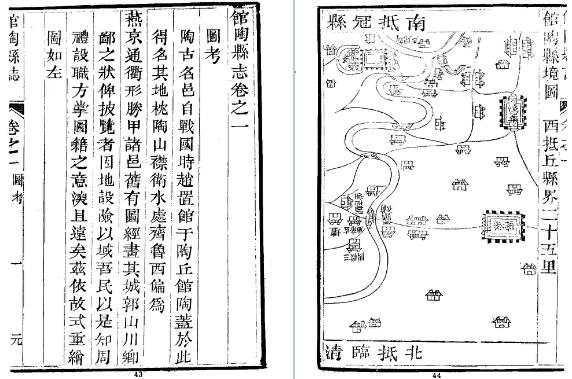 館陶縣志卷之一
圖考
陶古名邑自戰國時趙置館于陶丘館陶蓋於此
得名其地枕陶山襟衛水處齊魯西偏為
燕京通衢形勝甲諸邑舊有圖經畫其城郭山川卿
鄙之狀俾披覽者因地設險以域吾民以是知周
禮設職方掌圖籍之意深且遠矣茲依故式重繪
圖如左
館陶縣志
卷之一
圖考
一
元
43
館陶縣境圖
西抵丘縣界二十五里
南抵冠縣
北抵臨清
44